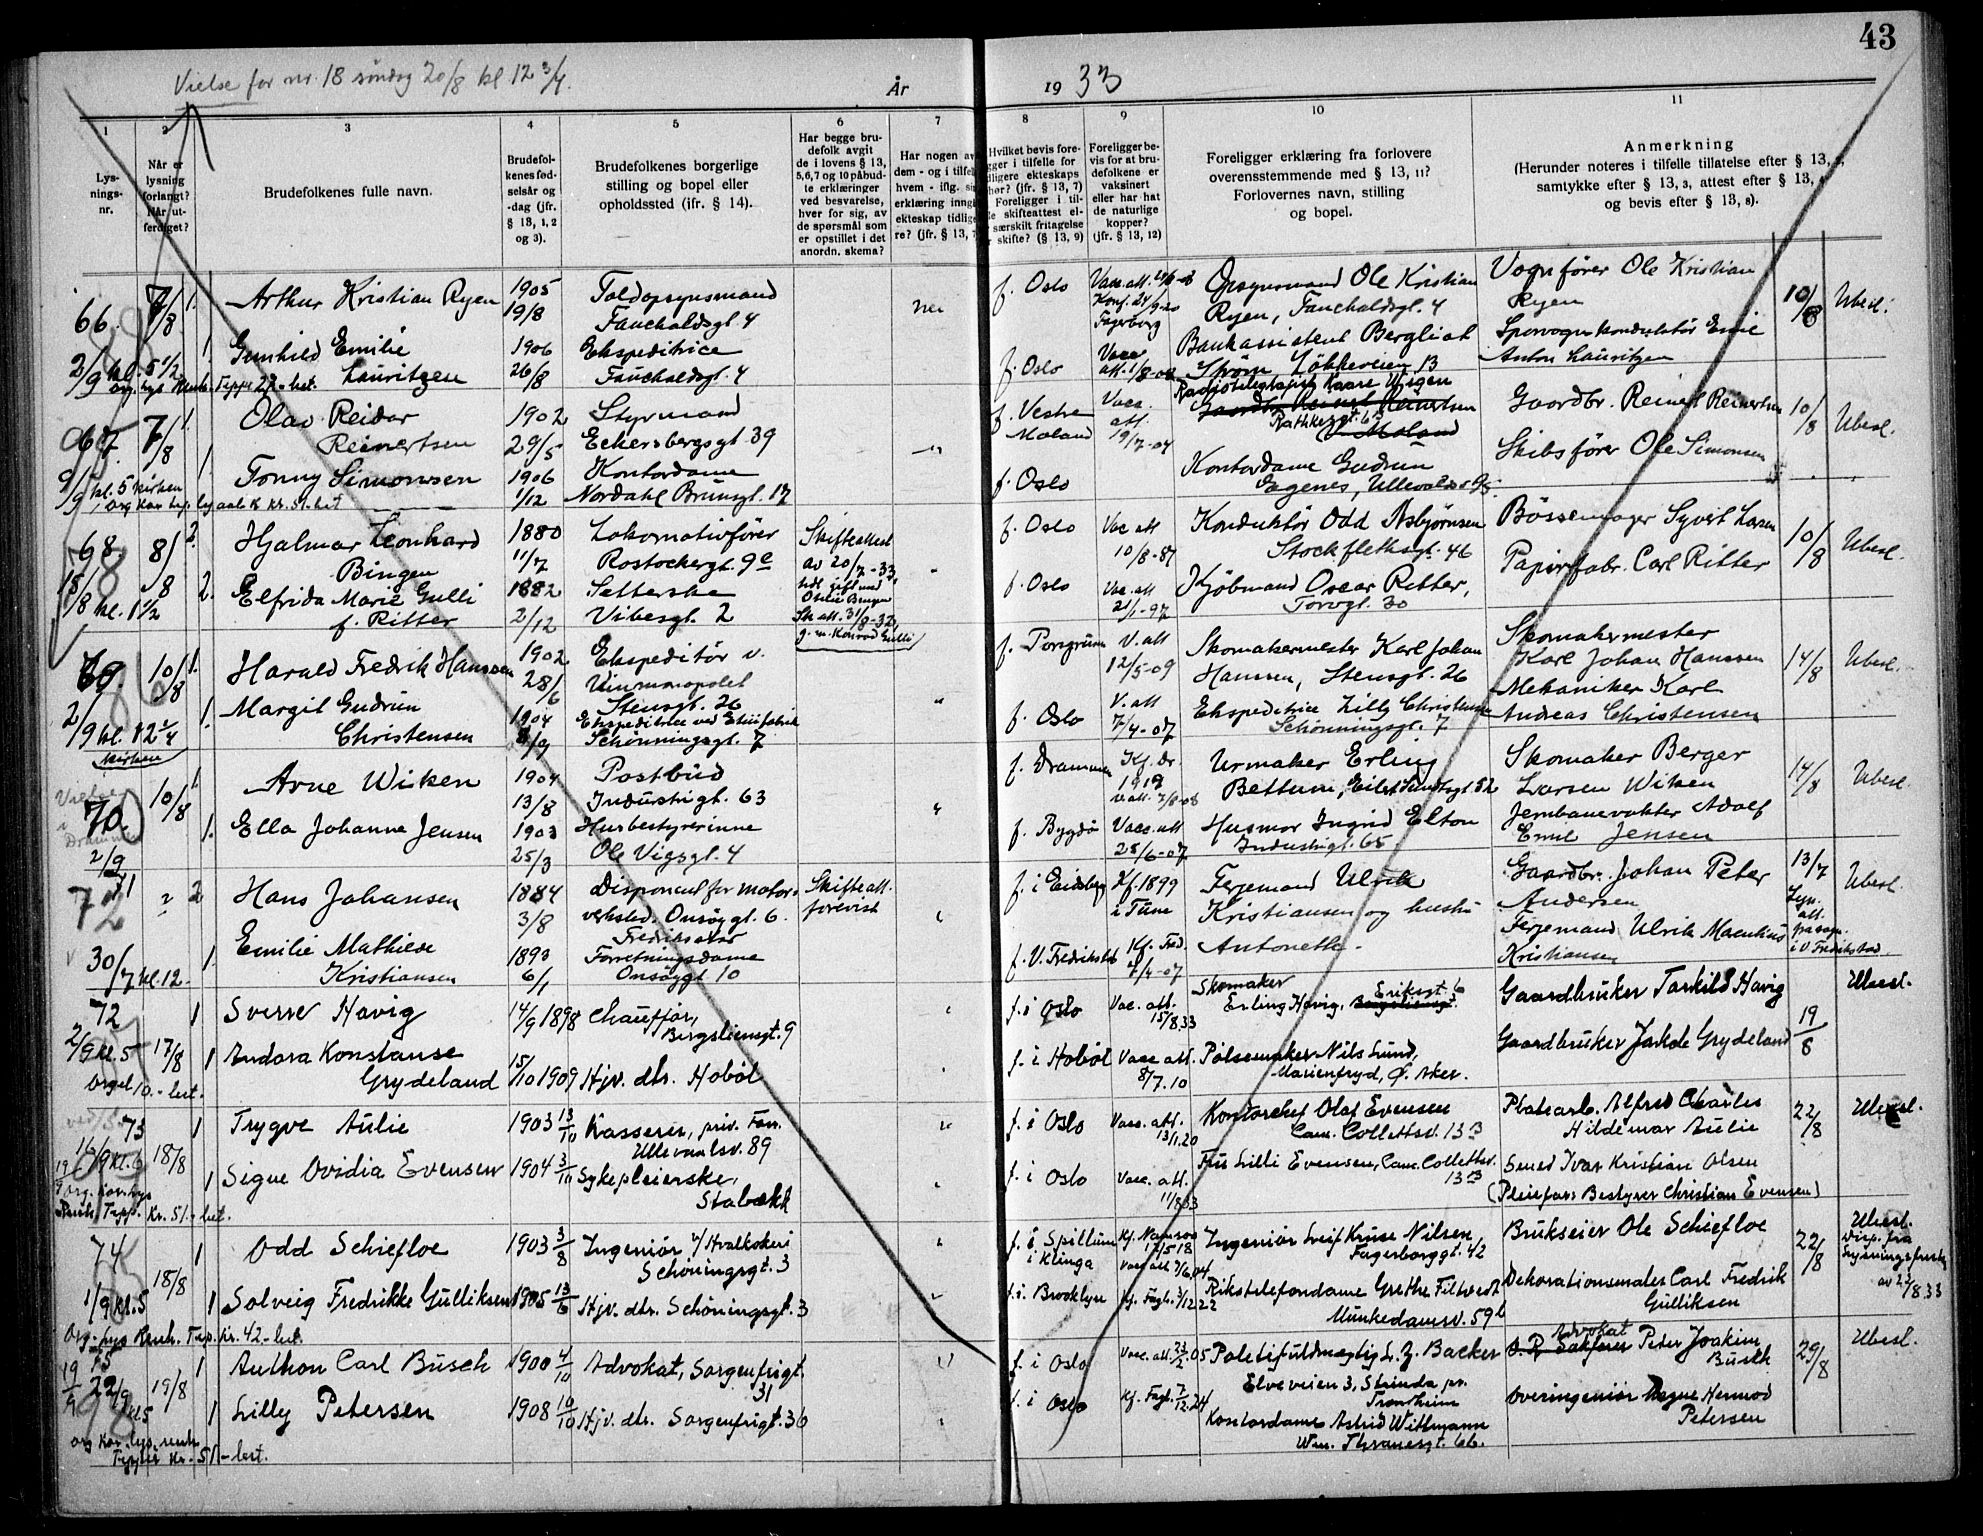 43
Vielse for nr. 18 søndag 20/8 kl 12 3/4.
År
19 33
1
2
3
4
5
6
7
8
9
10
11
Lys-
nings-
nr.
Når er
lysning
forlangt?
Når ut-
ferdiget?
Brudefolkenes fulle navn.
Brudefol-
kenes fød-
selsår og
-dag (jfr.
§ 13, 1, 2
og 3).
Brudefolkenes borgerlige
stilling og bopel eller
opholdssted (jfr. § 14).
Har begge bru-
defolk avgit
de i lovens § 13,
5,6,7 og 10 påbud-
te erklæringer
ved besvarelse,
hver for sig, av
de spørsmål som
er opstillet i det
anordn. skema?
Har nogen av
dem - og i tilfel
hvem - iflg. si
erklæring inngå
ekteskap tidlige
re? (jfr. § 13, 7
Hvilket bevis fore-
gger i tilfelle for
dligere ekteskaps
hør? (jfr. § 13, 7)
Foreligger i til-
le skifteattest el-
særskilt fritagelse
r skifte? (§ 13, 9)
Foreligger be-
vis for at bru-
defolkene er
vaksinert
eller har hat
de naturlige
kopper?
(jfr. § 13, 12)
Foreligger erklæring fra forlovere
overensstemmende med § 13, 11?
Forlovernes navn, stilling
og bopel.
Anmerkning
(Herunder noteres i tilfelle tillatelse efter § 13, 2,
samtykke efter § 13, 3, attest efter § 13, 4
og bevis efter § 13, 8).
66. 7/8 1. Arthur Kristian Ryen 1905 19/8 Toldopsynsmand Fauchaldsgt. 4 nei f. Oslo Konf. 24/9-20 Fagerborg Opsynsmand Ole Kristian Ryen, Fauchaldsgt. 4 Vognfører Ole Kristian Ryen 10/8 Ubesl.
2/9 kl. 5 1/2 1. Gunhild Emilie Lauritzen 1906 26/8 Ekspeditrice Fauchaldsgt. 4 f. Oslo Vacc. att. 1/8-08 Bankassistent Bergliot Strøm, Løkkeveien 13 Sporvognskonduktør Emil Anton Lauritzen
67. 7/8 1. Olav Reidar Reinertsen 1902 29/5 Styrmand Eckersbergsgt. 39 f. Vestre Moland Vacc. att. 19/7-04 Radiotelegrafist Kaare Wigen Gaardbr. Reinert Reinertsen Rathkesgt. 6 V. Moland Gaardbr. Reinert Reinertsen 10/8 Ubesl.
9/9 kl. 5 kirken 1. Tonny Simonsen 1906 1/12 Kontordame Nordahl Brunsgt. 17 f. Oslo Kontordame Gudrun Eagenes, Skibsfører Ole Simonsen
68. 8/8 2. Hjalmar Leonhard Bingen 1880 11/7 Lokomotivfører Rostockergt. 9c Skifteattest av 20/7-33, f. Oslo Vac att 10/8-87 Konduktør Odd Asbjørnsen Stockflethsgt. 46 Bøssemager Syvert Larsen 10/8 Ubesl.
15/8 kl. 1 1/2 2. Elfrida Marie Gulli f. Ritter 1882 2/12 Setterske Vibesgt. 2 Sk. att. 31/8-32, g. m. Konrad Gulli f. Oslo Vac. att 21/1-97 Kjøbmand Oscar Ritter, Torvgt. 30 Papirfabr. Carl Ritter
69. 10/8 1. Harald Fredrik Hanssen 1902 28/6 Ekspeditør v. Vinmonopolet Stensgt. 26 f. Porsgrunn V. att 12/5-09 Skomakermester Karl Johan Hanssen, Stensgt. 26 Skomakermester Karl Johan Hanssen 14/8 Ubesl.
2/9 kl. 12 1/4 kirken 1. Margit Gudrun Christensen 1904 8/9 Ekspeditrice ved Etuifabrik Schønningsgt. 7 f. Oslo V. att 7/4-07 Ekspeditrice Lilly Christensen Schønningsgt. 7 Mekaniker Karl Andreas Christensen
70 10/8 1. Arne Wiken 1904 13/8 Postbud Industrigt. 63 f. Drammen Kf. Dr. 1919 Urmaker Erling Bettum, Eilert Sundtsgt. 52 Skomaker Berger Larsen Wiken 14/8 Ubesl.
2/9 1. Ella Johanne Jensen 1903 25/3 Husbestyrerinne Ole Vigsgt. 4 f. Bygdø Vacc. att 28/6-07 Husmor Ingrid Elton Industrigt. 65 Jernbanevakter Adolf Emil Jensen
71 2 Hans Johansen 1884 3/8 Disponent for motorverksted. Onsøygt. 6. Fredrikstad Skifteatt. forevist f. i Eidsberg Kf. 1899 i Tune Ferjemand Ulrik Kristiansen og hustru Gaardbr. Johan Peter Andersen 13/7 Ubesl.
30/7 kl. 12. 1. Emilie Mathilde Kristiansen 1893 6/1 Forretningsdame Onsøygt 10 f. V. Fredrikstad Kf. Fred. 7/4-07 Antonette. Ferjemand Ulrik Kristiansen
72 1 Sverre Høvig 14/9 1898 Chauffør, Bergsliensgt. 9 f. i Oslo Vac. att. 15/8.33 Skomaker Erling Høvig, Eriksgt. 6 Gaardbruker Torkild Høvig 19/8 Ubesl.
2/9 kl. 5 17/8 1 Andora Konstanse Grydeland 15/10 1909 Hjv. dtr. Hobøl f. i Hobøl Vacc att. 8/7.10 Pølsemaker Nils Lund, Marienfryd, Ø. Aker. Gaardbruker Jakob Grydeland
Orgel 10.- bet.
73 18/8 1 Trygve Aulie 1903 13/10 Kasserer, priv. Fun. Ullevaalsv. 89 f. i Oslo Vacc. att. 13/1.20 Kontorchef Olaf Evensen Cam. Collettsv. 13 B Platearb. Alfred Charles Hildemar Aulie 22/8 Ubesl.
16/9 kl. 6 1 Signe Ovidia Evensen 1904 3/10 Sykepleierske, Stabækk f. i Oslo Vacc. att. 11/8.33 Fru Lilli Evensen, Cam. Collettsv. 13 B Smed Ivar Kristian Olsen
(Pleiefar: Bestyrer Christian Evensen)
74 18/8 1 Odd Schiefloe 1903 3/8 Ingeniør v/ Hvalkokeri Schøningsgt. 3 f. i Spillum i Klinga Kf. Namsos 17/5 18 Vacc att 7/6.04 Ingeniør Leif Kruse Nilsen, Fagerborggt. 42 Brukseier Ole Schiefloe 22/8 Ubesl. Disp. fra lysningsfrist av 22/8.33
1/9 kl. 5 1 Solveig Fredrikke Gulliksen 1905 13/6 Hjv. dtr. Schøningsgt. 3 f. i. Brooklyn Kf. Fagb. 3/12 22 Rikstelefondame Grethe Filtvedt Munkedamsv. 59 b Dekorationsmaler Carl Fredrik Gulliksen
75 19/8 1 Anthon Carl Busch 1900 4/10 Advokat, Sorgenfrigt. 31 f. i Oslo Vacc. att. 23/2.05 Politifullmektig L. Z. Backer Elveveien 3, Strinda pr. Trondheim Advokat Peter Joakim Busch 29/8 Ubesl.
22/9 kl 5 1 Lilly Petersen 1908 10/10 Hjv. dtr. Sorgenfrigt. 36 f. i Oslo Kf. Fagb. 7/12.24 Kontordame Astrid Wittmann Wm. Thranesgt. 66. Overingeniør Magne Hermod Petersen